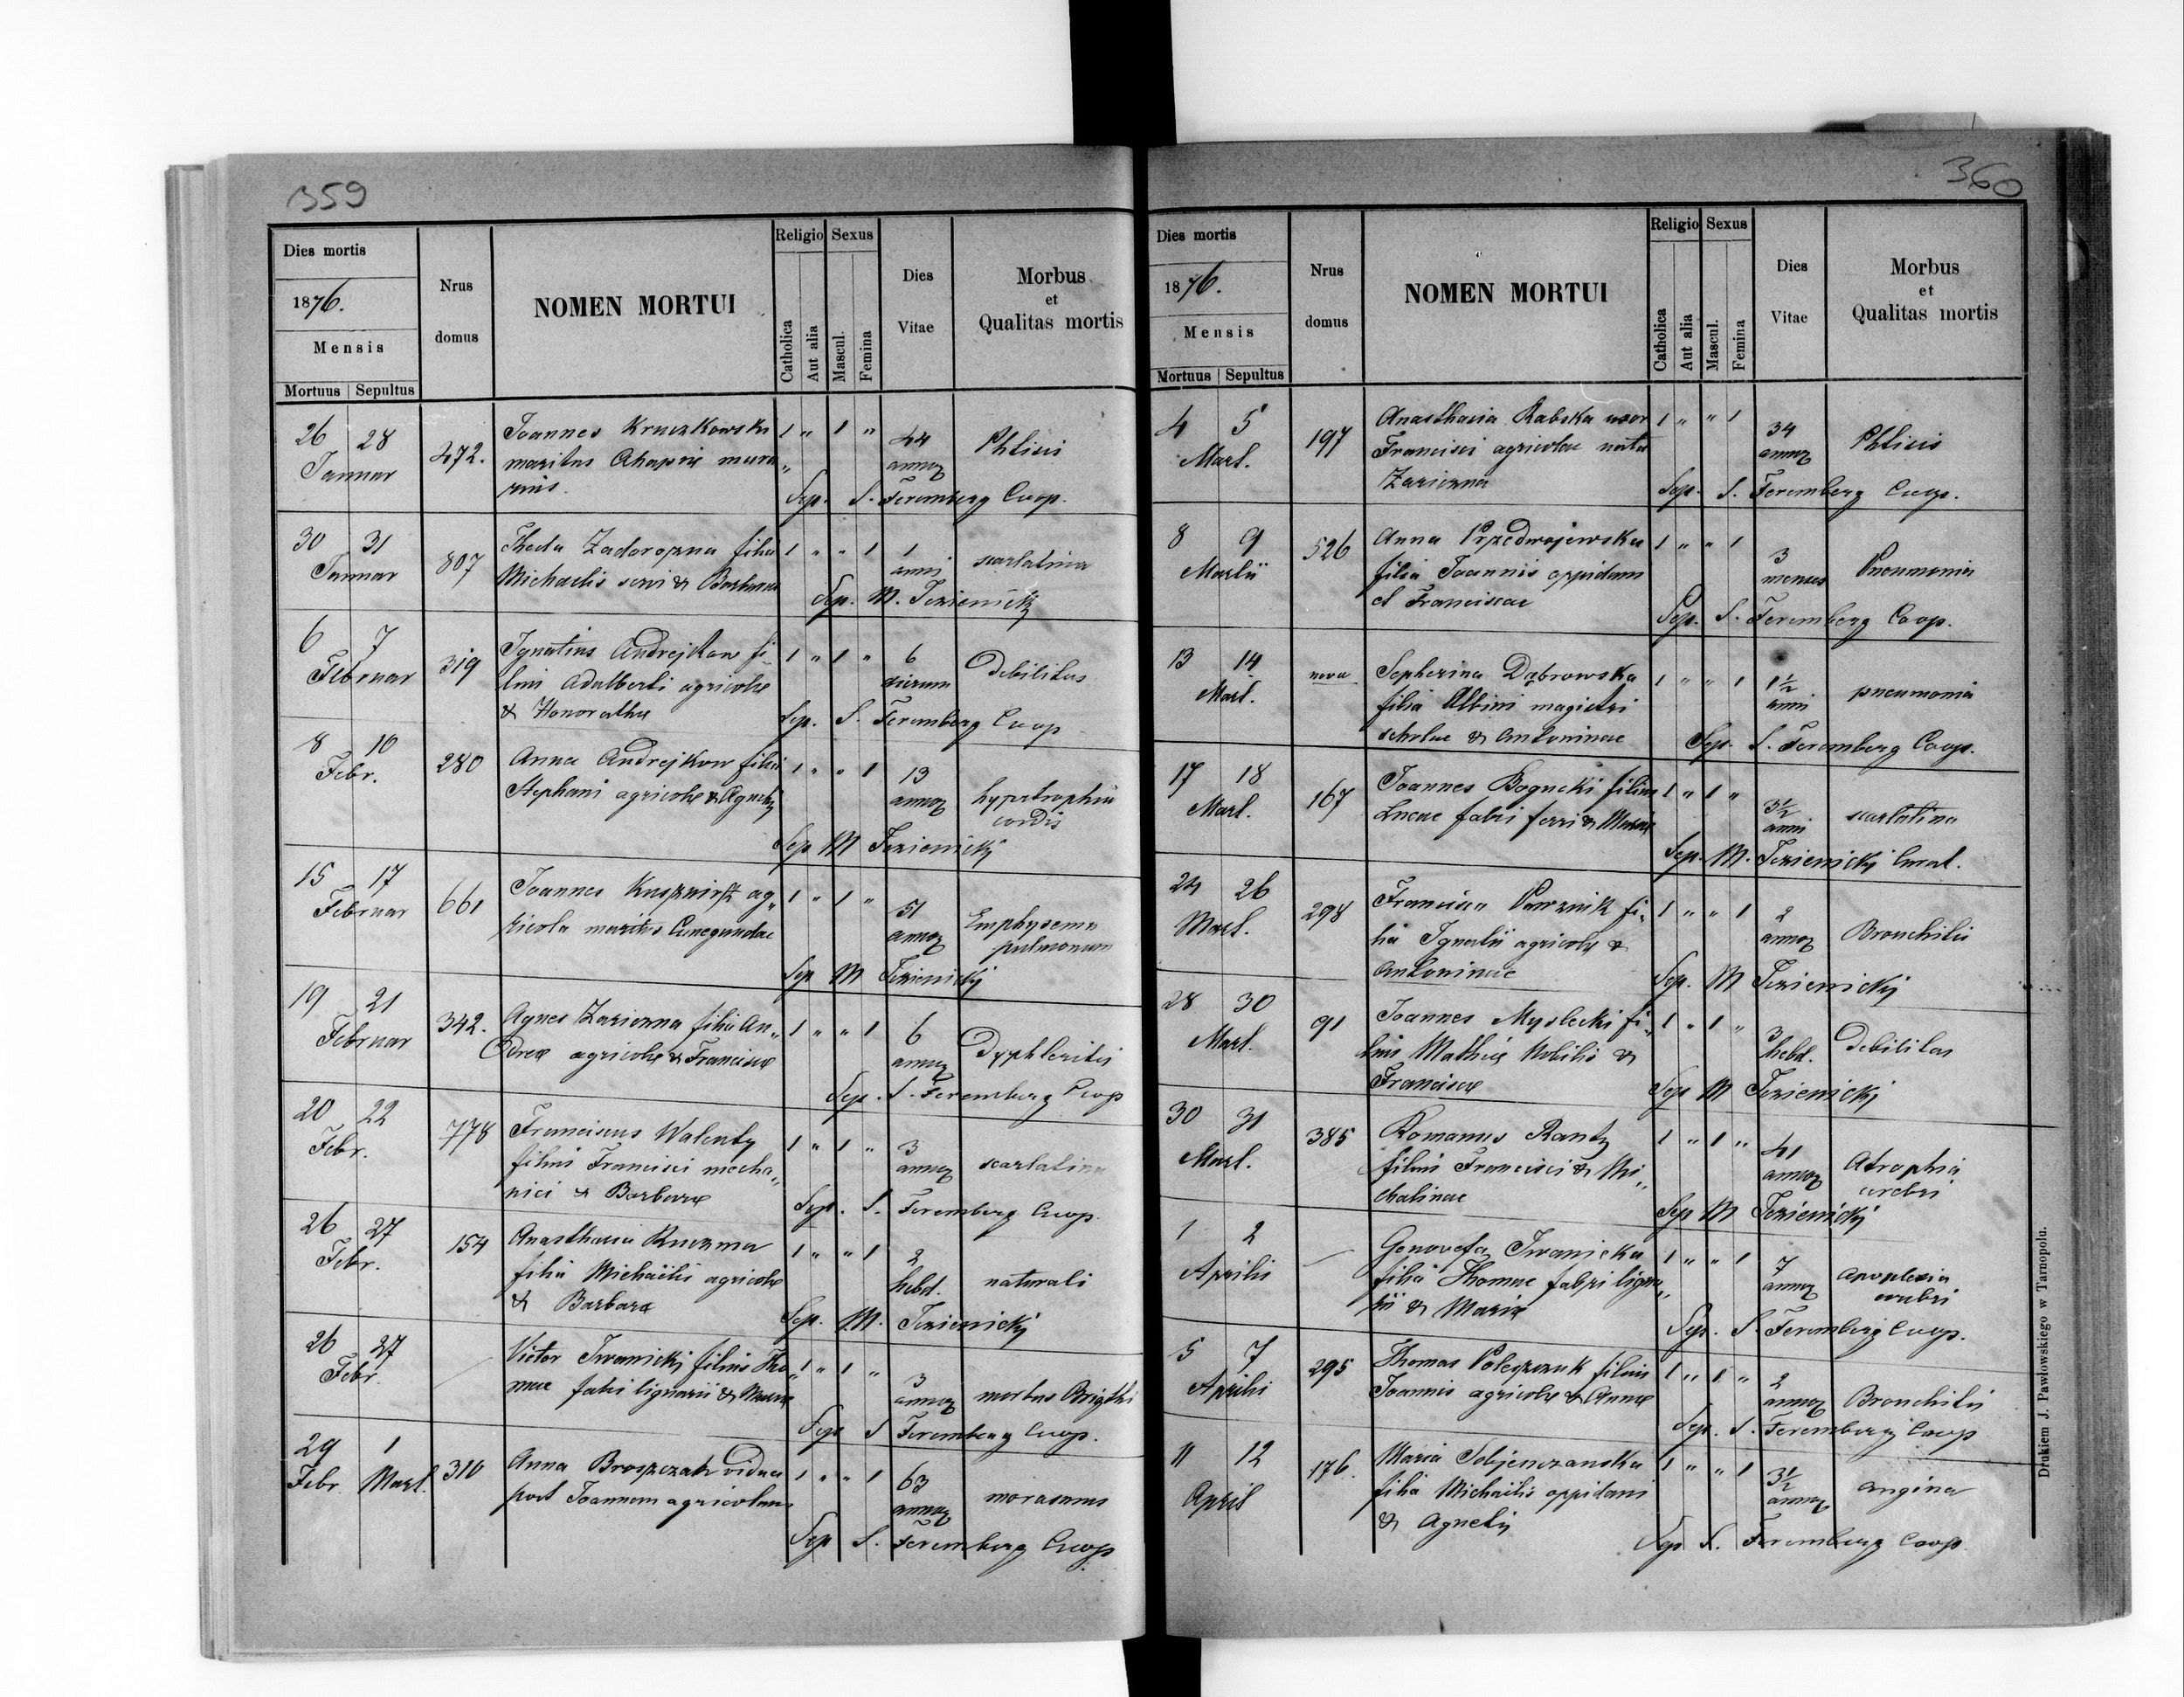 359
Dies mortis
1876.
Mensis
Mortuus Sepultus
Nrus domus
NOMEN MORTUI
Religio Sexus
Catholica Aut alia Mascul. Femina
Dies Vitae
Morbus et Qualitas mortis
26 28 472. Joannes Kruczkowski 1 " 1 " 44 Phtisis
Januar maritus Ahapiæ mura annoȝ
rius. Sep. S. Feremberg Coop.
30 31 807 Theda Zadorozna filia 1 " " 1 1 scarlatina
Januar Michaelis servi & Barbarae anni
Sep. M. Jezienicky
6 7 319 Ignatius Andrejkow fi 1 " 1 " 6 Debilitas
Februar lius Adalberti agricolæ dierum
& Honorathæ Sep. S. Feremberg Coop
8 10 280 Anna Andrejkow filia 1 " " 1 13 hypertrophia
Febr. Stephani agricolæ & Agnetis annoȝ cordis
Sep M Jezienicky
15 17 661 Joannes Kusznirz ag 1 " 1 " 51 Emphysema
Februar ricola maritus Cunegundae annoȝ pulmonum
Sep M Jezienicky
19 21 342. Agnes Zariczna filia An 1 " " 1 6 Dyphteritis
Februar dreæ agricolæ & Franciscæ annoȝ
Sep. S. Feremberg Coop
20 22 778 Franciscus Walenty 1 " 1 " 3 scarlatina
Febr. filius Francisci mecha annoȝ
nici & Barbaræ Sep. S. Feremberg Coop.
26 27 154 Anasthasia Kuczma 1 " " 1 2 naturali
Febr. filia Michaëlis agricolæ hebd.
& Barbaræ Sep. M. Jezienicky
26 27 Victor Iwanicki filius Tho 1 " 1 " 3 morbus Brigthi
Febr. mae fabri lignarii & Mariæ annoȝ
Sep S Feremberg Coop.
29 1 310 Anna Broszczak vidua 1 " " 1 63 marasmus
Febr Mart. post Joannem agricolam annoȝ
Sep S. Feremberg Coop.
360
Dies mortis
1876.
Mensis
Mortuus Sepultus
Nrus domus
NOMEN MORTUI
Religio Sexus
Catholica Aut alia Mascul. Femina
Dies Vitae
Morbus et Qualitas mortis
4 5 197 Anasthasia Rabska uxor 1 " " 1 34 Phtisis
Mart. Francisci agricolae nata annoȝ
Zariczna Sep. S. Feremberg Coop.
8 9 526 Anna Przedwojewska 1 " " 1 3 Pneumonia
Martii filia Joannis oppidani menses
et Franciscae Sep. S. Feremberg Coop.
13 14 nova Sepherina Dąbrowska 1 " " 1 1½ pneumonia
Mart. filia Albini magistri anni
scholae & Antoninae Sep. S. Feremberg Coop.
17 18 167 Joannes Bogucki filius 1 " 1 " 3½ scarlatina
Mart. Lucae fabri ferri & Mariæ anni
Sep. M. Jezienicky Curat.
24 26 298 Francisca Pawznik fi 1 " " 1 2 Bronchitis
Mart. lia Ignatii agricolæ & annoȝ
Antoninae Sep. M Jezienicky
28 30 91 Joannes Myslecki fi 1 " 1 " 3 Debilitas
Mart. lius Mathiæ Nobilis & hebd.
Franciscæ Sep M Jezienicky
30 31 385 Romanus Rantz 1 " 1 " 41 Atrophia
Mart. filius Francisci & Mi annoȝ cerebri
chalinae Sep M Jezienicky
1 2 Genovefa Iwanicka 1 " " 1 7 apoplexia
Aprilis filia Thomae fabri ligna annoȝ cerebri
rii & Mariæ Sep. S. Feremberg Coop.
5 7 295 Thomas Poleszczuk filius 1 " 1 " 2 Bronchitis
Aprilis Joannis agricolæ & Annæ annoȝ
Sep. S. Feremberg Coop
11 12 176. Maria Sobjenczanska 1 " " 1 3½ angina
April filia Michaëlis oppidani annoȝ
& Agnetis Sep S. Feremberg Coop.
Drukiem J. Pawłowskiego w Tarnopolu.